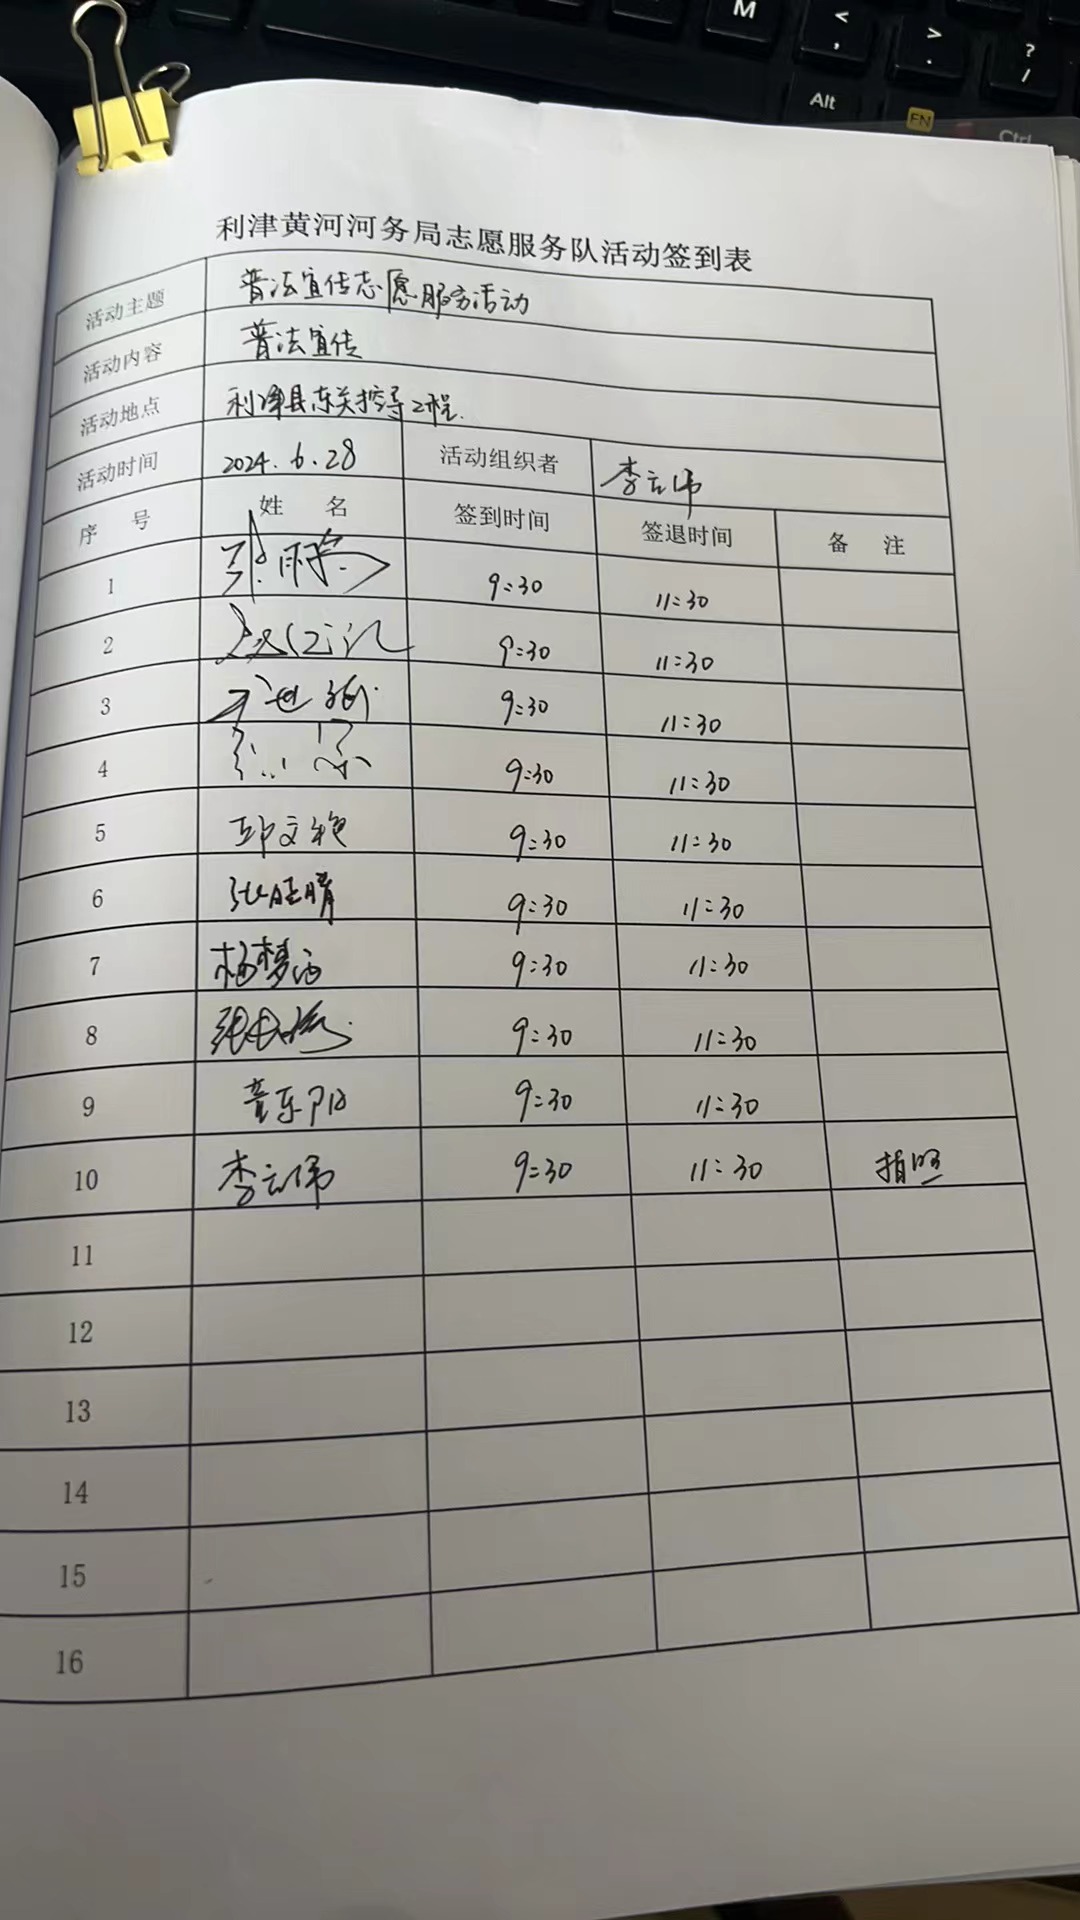 M
<
,
>
.
?
/
Alt
FN
Ctrl
利津黄河河务局志愿服务队活动签到表
活动主题 普法宣传志愿服务活动
活动内容 普法宣传
活动地点 利津县东关控导工程.
活动时间 2024.6.28 活动组织者 李云伟
序 号 姓 名 签到时间 签退时间 备 注
1 9:30 11:30
2 9:30 11:30
3 9:30 11:30
4 9:30 11:30
5 邱文艳 9:30 11:30
6 9:30 11:30
7 杨梦西 9:30 11:30
8 9:30 11:30
9 董东阳 9:30 11:30
10 李云伟 9:30 11:30 拍照
11
12
13
14
15
16